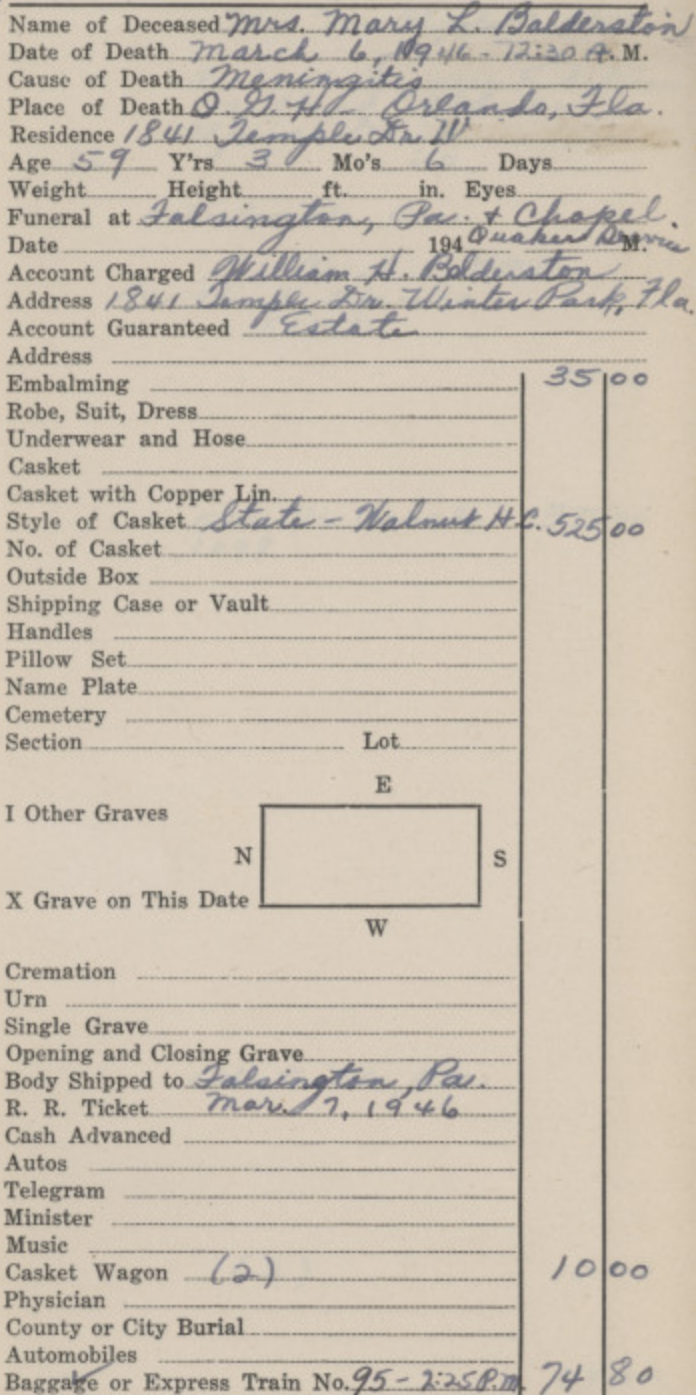 Name of Deceased Mrs. Mary L. Balderston
Date of Death March 6, 1946 - 12:30 A. M.
Cause of Death Meningitis
Place of Death O. G. H. Orlando, Fla.
Residence 1841 Temple Dr. W
Age 59 Y'rs 3 Mo's 6 Days
Weight Height ft. in. Eyes
Funeral at Falsington, Pa. & Chapel.
Date 194 Quaker Service M.
Account Charged William H. Balderston
Address 1841 Temple Dr. Winter Park, Fla.
Account Guaranteed Estate
Address
Embalming 35 00
Robe, Suit, Dress
Underwear and Hose
Casket
Casket with Copper Lin.
Style of Casket State - Walnut H.C. 525 00
No. of Casket
Outside Box
Shipping Case or Vault
Handles
Pillow Set
Name Plate
Cemetery
Section Lot
E
I Other Graves
N S
X Grave on This Date
W
Cremation
Urn
Single Grave
Opening and Closing Grave
Body Shipped to Falsington, Pa.
R. R. Ticket Mar. 7, 1946
Cash Advanced
Autos
Telegram
Minister
Music
Casket Wagon (2) 10 00
Physician
County or City Burial
Automobiles
Baggage or Express Train No. 95 - 2:25 P.M. 74 80